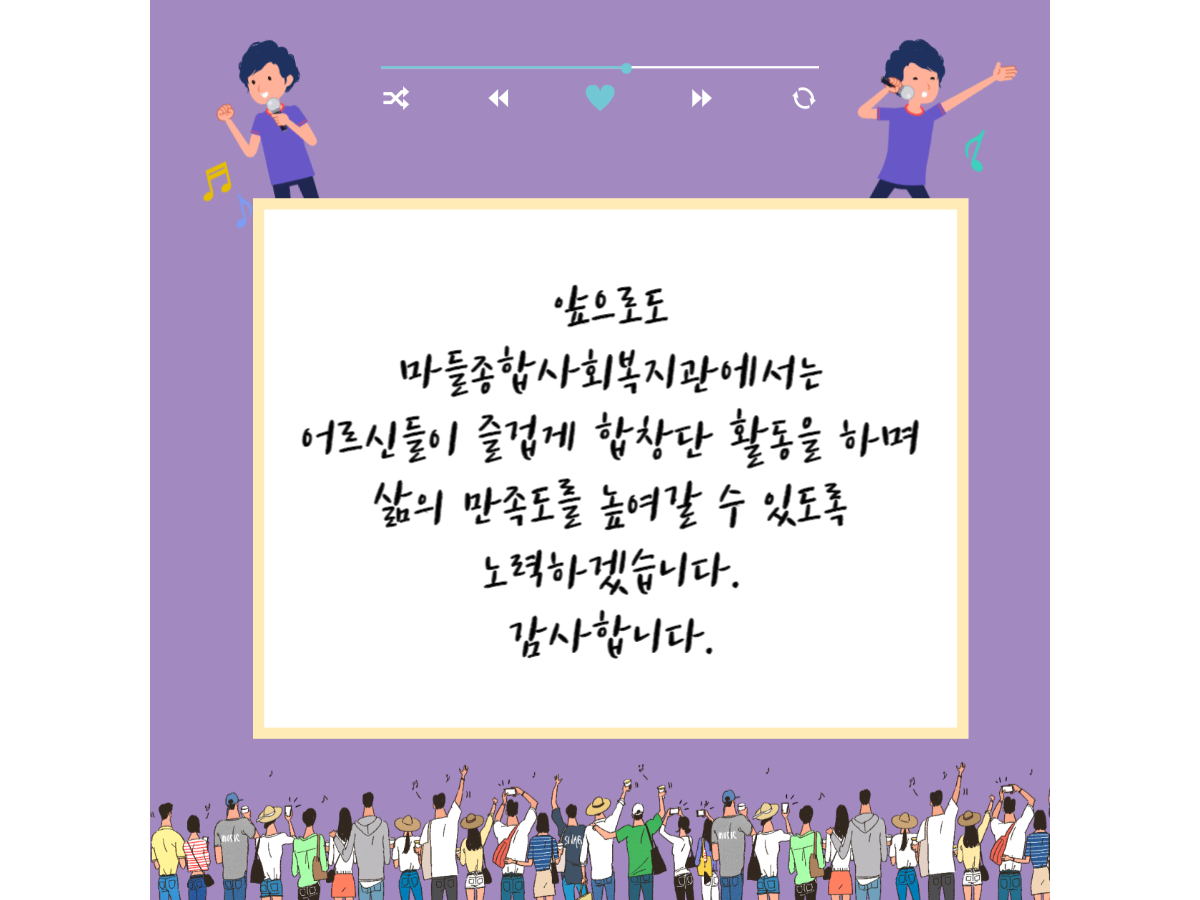 앞으로도
마들종합사회복지관에서는
어르신들이 즐겁게 합창단 활동을 하며
삶의 만족도를 높여갈 수 있도록
노력하겠습니다.
감사합니다.